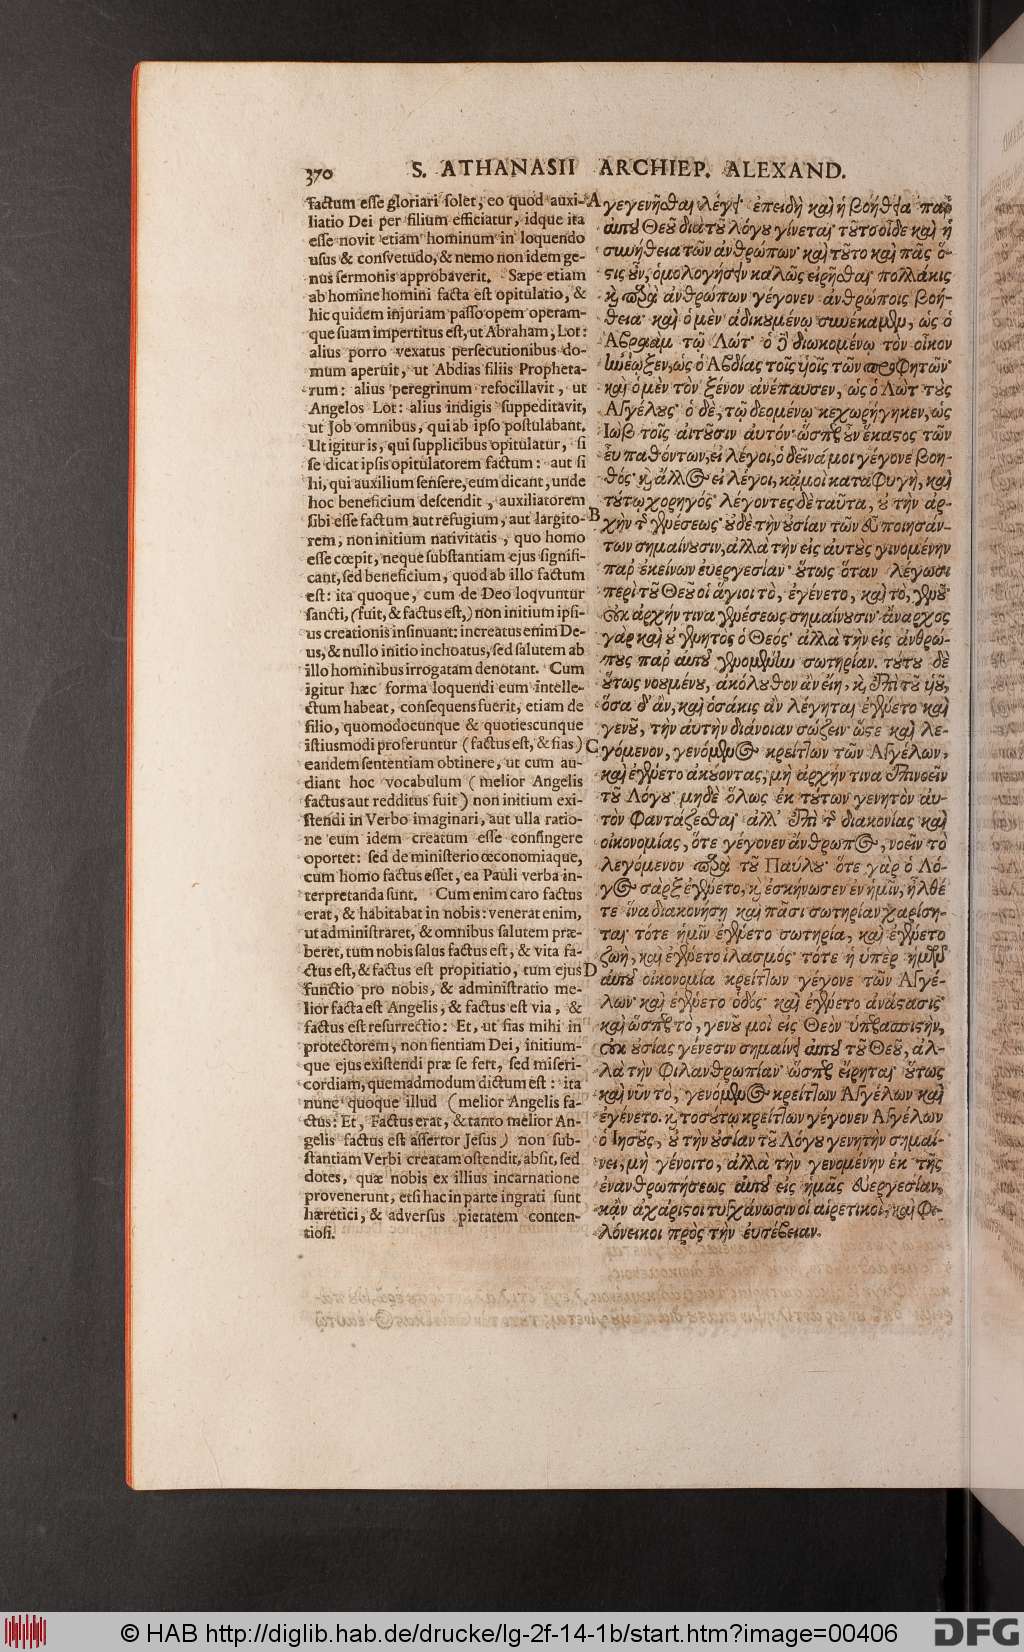 370 S. ATHANASII ARCHIEP. ALEXAND.
factum esse gloriari solet, eo quod auxi-
liatio Dei per filium efficiatur, idque ita
esse novit etiam hominum in loquendo
usus & consvetudo, & nemo non idem ge-
nus sermonis approbaverit. Sæpe etiam
ab homine homini facta est opitulatio, &
hic quidem injuriam passo opem operam-
que suam impertitus est, ut Abraham, Lot:
alius porro vexatus persecutionibus do-
mum aperuit, ut Abdias filiis Propheta-
rum: alius peregrinum refocillavit, ut
Angelos Lot: alius indigis suppeditavit,
ut Job omnibus, qui ab ipso postulabant.
Ut igitur is, qui supplicibus opitulatur, si
se dicat ipsis opitulatorem factum: aut si
hi, qui auxilium sensere, eum dicant, unde
hoc beneficium descendit, auxiliatorem
sibi esse factum aut refugium, aut largito-
rem, non initium nativitatis, quo homo
esse cœpit, neque substantiam ejus signifi-
cant, sed beneficium, quod ab illo factum
est: ita quoque, cum de Deo loqvuntur
sancti, (fuit, & factus est,) non initium ipsi-
us creationis insinuant: increatus enim De-
us, & nullo initio inchoatus, sed salutem ab
illo hominibus irrogatam denotant. Cum
igitur hæc forma loquendi eum intelle-
ctum habeat, consequens fuerit, etiam de
filio, quomodocunque & quotiescunque
istiusmodi proferuntur (factus est, & fias)
eandem sententiam obtinere, ut cum au-
diant hoc vocabulum (melior Angelis
factus aut redditus fuit) non initium exi-
stendi in Verbo imaginari, aut ulla ratio-
ne eum idem creatum esse confingere
oportet: sed de ministerio œconomiaque,
cum homo factus esset, ea Pauli verba in-
terpretanda sunt. Cum enim caro factus
erat, & habitabat in nobis: venerat enim,
ut administraret, & omnibus salutem præ-
beret, tum nobis salus factus est, & vita fa-
ctus est, & factus est propitiatio, tum ejus
functio pro nobis, & administratio me-
lior facta est Angelis, & factus est via, &
factus est resurrectio: Et, ut fias mihi in
protectorem, non sientiam Dei, initium-
que ejus existendi præ se fert, sed miseri-
cordiam, quemadmodum dictum est: ita
nunc quoque illud (melior Angelis fa-
ctus: Et, Factus erat, & tanto melior An-
gelis factus est assertor Jesus) non sub-
stantiam Verbi creatam ostendit, absit, sed
dotes, quæ nobis ex illius incarnatione
provenerunt, etsi hac in parte ingrati sunt
hæretici, & adversus pietatem conten-
tiosi.
A γεγενῆσθαι λέγει· ἐπειδὴ καὶ ἡ βοήθεια παρ'
αὐτοῦ Θεοῦ διὰ τοῦ λόγου γίνεται τοῦτο οἶδε καὶ ἡ
συνήθεια τῶν ἀνθρώπων· καὶ τοῦτο καὶ πᾶς ὅ-
στις οὖν, ὁμολογήσειεν καλῶς εἰρῆσθαι πολλάκις
καὶ παρὰ ἀνθρώπων γέγονεν ἀνθρώποις βοή-
θεια· καὶ ὁ μὲν ἀδικουμένῳ συνέκαμεν, ὡς ὁ
Ἀβραὰμ τῷ Λώτ· ὁ δὲ διωκομένῳ τὸν οἶκον
ἠνέῳξεν, ὡς ὁ Ἀβδίας τοῖς υἱοῖς τῶν προφητῶν·
καὶ ὁ μὲν τὸν ξένον ἀνέπαυσεν, ὡς ὁ Λὼτ τοὺς
Ἀγγέλους· ὁ δὲ, τῷ δεομένῳ κεχωρήγηκεν, ὡς
Ἰὼβ τοῖς αἰτοῦσιν αὐτόν· ὥσπερ οὖν ἕκαστος τῶν
εὖ παθόντων, εἰ λέγοι, ὁ δεῖνά μοι γέγονε βοη-
θός· καὶ ἄλλος εἰ λέγοι, κᾀμοὶ καταφυγὴ, καὶ
τούτῳ χορηγός· λέγοντες δὲ ταῦτα, οὐ τὴν ἀρ-
B χὴν τῆς γενέσεως· οὐδὲ τὴν οὐσίαν τῶν εὖ ποιησάν-
των σημαίνουσιν, ἀλλὰ τὴν εἰς αὐτοὺς γινομένην
παρ' ἐκείνων εὐεργεσίαν· οὕτως ὅταν λέγωσι
περὶ τοῦ Θεοῦ οἱ ἅγιοι τὸ, ἐγένετο, καὶ τὸ, γενοῦ·
οὐκ ἀρχήν τινα γενέσεως σημαίνουσιν· ἄναρχος
γὰρ καὶ οὐ γενητὸς ὁ Θεός· ἀλλὰ τὴν εἰς ἀνθρώ-
πους παρ' αὐτοῦ γενομένην σωτηρίαν. τούτου δὲ
οὕτως νοουμένου, ἀκόλουθον ἂν εἴη, καὶ ἐπὶ τοῦ υἱοῦ,
ὅσα δ' ἂν, καὶ ὁσάκις ἂν λέγηται ἐγένετο καὶ
γενοῦ, τὴν αὐτὴν διάνοιαν σώζειν· ὥστε καὶ λε-
C γόμενον, γενόμενος κρείττων τῶν Ἀγγέλων,
καὶ ἐγένετο ἀκούοντας, μὴ ἀρχήν τινα ἐπινοεῖν
τοῦ Λόγου· μηδὲ ὅλως ἐκ τούτων γενητὸν αὐ-
τὸν φαντάζεσθαι· ἀλλ' ἐπὶ τῆς διακονίας καὶ
οἰκονομίας, ὅτε γέγονεν ἄνθρωπος, νοεῖν τὸ
λεγόμενον παρὰ τοῦ Παύλου· ὅτε γὰρ ὁ Λό-
γος σὰρξ ἐγένετο, καὶ ἐσκήνωσεν ἐν ἡμῖν, ἦλθέ
τε ἵνα διακονήσῃ καὶ πᾶσι σωτηρίαν χαρίση-
ται τότε ἡμῖν ἐγένετο σωτηρία, καὶ ἐγένετο
ζωὴ, καὶ ἐγένετο ἱλασμός· τότε ἡ ὑπὲρ ἡμῶν
D αὐτοῦ οἰκονομία κρείττων γέγονε τῶν Ἀγγέ-
λων· καὶ ἐγένετο ὁδός· καὶ ἐγένετο ἀνάστασις·
καὶ ὥσπερ τὸ, γενοῦ μοὶ εἰς Θεὸν ὑπερασπιστὴν,
οὐκ οὐσίας γένεσιν σημαίνει αὐτοῦ τοῦ Θεοῦ, ἀλ-
λὰ τὴν φιλανθρωπίαν· ὥσπερ εἴρηται· οὕτως
καὶ νῦν τὸ, γενόμενος κρείττων Ἀγγέλων καὶ
ἐγένετο. καὶ τοσούτῳ κρείττων γέγονεν Ἀγγέλων
ὁ Ἰησοῦς, οὐ τὴν οὐσίαν τοῦ Λόγου γενητὴν σημαί-
νει, μὴ γένοιτο, ἀλλὰ τὴν γενομένην ἐκ τῆς
ἐνανθρωπήσεως αὐτοῦ εἰς ἡμᾶς εὐεργεσίαν,
κᾂν ἀχάριστοι τυγχάνωσιν οἱ αἱρετικοὶ, καὶ φι-
λόνεικοι πρὸς τὴν εὐσέβειαν.
© HAB http://diglib.hab.de/drucke/lg-2f-14-1b/start.htm?image=00406
DFG